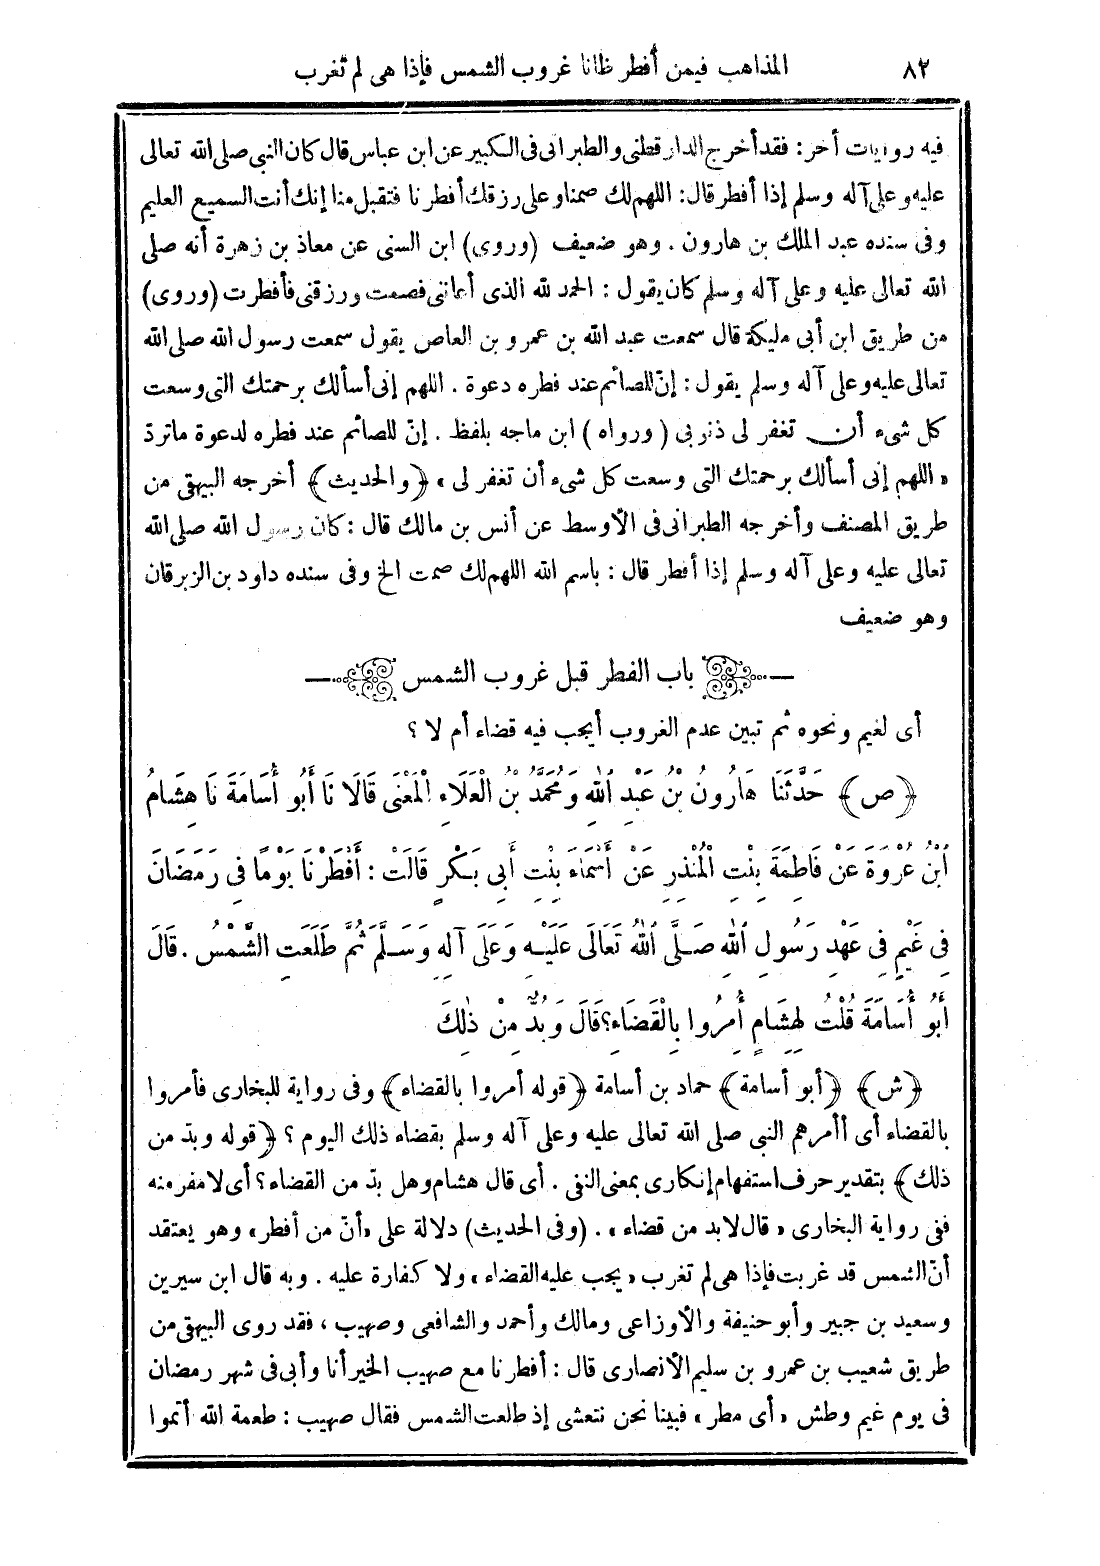 ٨٢ المذاهب فيمن أفطر ظانا غروب الشمس فإذا هى لم تغرب
فيه روايات أخر: فقد أخرج الدارقطنى والطبرانى فى الكبير عن ابن عباس قال كان النبى صلى الله تعالى
عليه وعلى آله وسلم إذا أفطر قال: اللهم لك صمنا وعلى رزقك أفطرنا فتقبل منا إنك أنت السميع العليم
وفى سنده عبد الملك بن هارون . وهو ضعيف (وروى) ابن السنى عن معاذ بن زهرة أنه صلى
الله تعالى عليه وعلى آله وسلم كان يقول : الحمد لله الذى أعاننى فصمت ورزقنى فأفطرت (وروى)
من طريق ابن أبى مليكة قال سمعت عبد الله بن عمرو بن العاص يقول سمعت رسول الله صلى الله
تعالى عليه وعلى آله وسلم يقول : إنّ للصائم عند فطره دعوة . اللهم إنى أسألك برحمتك التى وسعت
كل شىء أن تغفر لى ذنوبى ( ورواه ) ابن ماجه بلفظ . إنّ للصائم عند فطره لدعوة ماتردّ
« اللهم إنى أسألك برحمتك التى وسعت كل شىء أن تغفر لى » ﴿والحديث﴾ أخرجه البيهقى من
طريق المصنف وأخرجه الطبرانى فى الأوسط عن أنس بن مالك قال : كان رسول الله صلى الله
تعالى عليه وعلى آله وسلم إذا أفطر قال : باسم الله اللهم لك صمت الخ وفى سنده داود بن الزبرقان
وهو ضعيف
باب الفطر قبل غروب الشمس
أى لغيم ونحوه ثم تبين عدم الغروب أيجب فيه قضاء أم لا ؟
﴿ص﴾ حَدَّثَنَا هَارُونُ بْنُ عَبْدِ اللهِ وَمُحَمَّدُ بْنُ الْعَلَاءِ الْمَعْنَى قَالَا نَا أَبُو أُسَامَةَ نَا هِشَامُ
ابْنُ عُرْوَةَ عَنْ فَاطِمَةَ بِنْتِ الْمُنْذِرِ عَنْ أَسْمَاءَ بِنْتِ أَبِى بَكْرٍ قَالَتْ : أَفْطَرْنَا يَوْمًا فِى رَمَضَانَ
فِى غَيْمٍ فِى عَهْدِ رَسُولِ اللهِ صَلَّى اللهُ تَعَالَى عَلَيْهِ وَعَلَى آلِهِ وَسَلَّمَ ثُمَّ طَلَعَتِ الشَّمْسُ . قَالَ
أَبُو أُسَامَةَ قُلْتُ لِهِشَامٍ أُمِرُوا بِالْقَضَاءِ؟ قَالَ وَبُدٌّ مِنْ ذٰلِكَ
﴿ش﴾ ﴿أبو أسامة﴾ حماد بن أسامة ﴿قوله أمروا بالقضاء﴾ وفى رواية للبخارى فأمروا
بالقضاء أى أأمرهم النبى صلى الله تعالى عليه وعلى آله وسلم بقضاء ذلك اليوم ؟ ﴿قوله وبدّ من
ذلك﴾ بتقدير حرف استفهام إنكارى بمعنى النفى . أى قال هشام وهل بدّ من القضاء؟ أى لا مفر منه
ففى رواية البخارى « قال لابد من قضاء » . (وفى الحديث) دلالة على «أنّ من أفطر» وهو يعتقد
أنّ الشمس قد غربت فإذا هى لم تغرب «يجب عليه القضاء» ولا كفارة عليه . وبه قال ابن سيرين
وسعيد بن جبير وأبو حنيفة والأوزاعى ومالك وأحمد والشافعى وصهيب ، فقد روى البيهقى من
طريق شعيب بن عمرو بن سليم الأنصارى قال : أفطرنا مع صهيب الخير أنا وأبى فى شهر رمضان
فى يوم غيم وطش « أى مطر » فبينا نحن نتعشى إذ طلعت الشمس فقال صهيب : طعمة الله أتموا